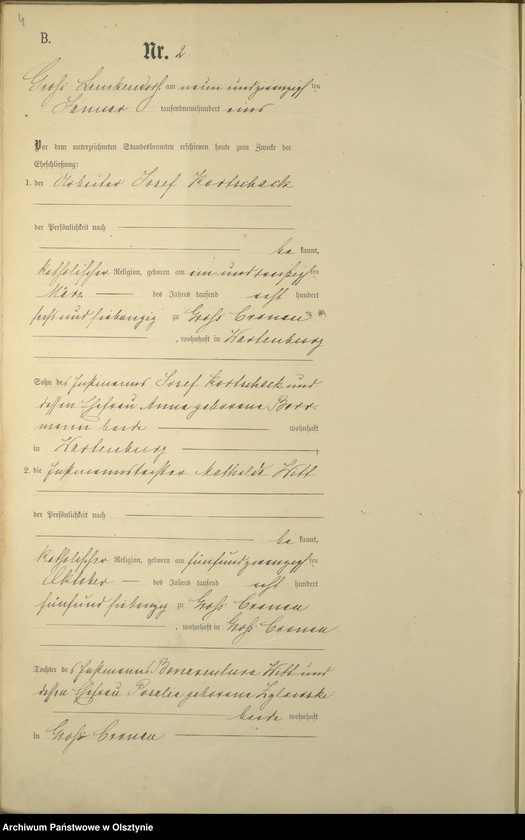 4
B.
Nr. 2.
Groß Lemkendorf am neun und zwanzigsten
Januar tausendneunhundert eins
Vor dem unterzeichneten Standesbeamten erschienen heute zum Zwecke der
Eheschließung:
1. der Arbeiter Josef Kortschack
der Persönlichkeit nach
be kannt,
katholischer Religion, geboren am ein und dreißigsten
März des Jahres tausend acht hundert
sechs und siebenzig zu Groß Cronau
, wohnhaft in Wartenburg
Sohn des Instmanns Josef Kortschack und
dessen Ehefrau Anna geborene Borr-
mann beide wohnhaft
in Wartenburg
2. die Instmannstochter Mathilde Witt
der Persönlichkeit nach
be kannt,
katholischer Religion, geboren am fünfundzwanzigsten
Oktober des Jahres tausend acht hundert
fünfundsiebenzig zu Groß Cronau
, wohnhaft in Groß Cronau
Tochter des Instmanns Bonaventura Witt und
dessen Ehefrau Rosalie geborene
beide wohnhaft
in Groß Cronau
Archiwum Państwowe w Olsztynie